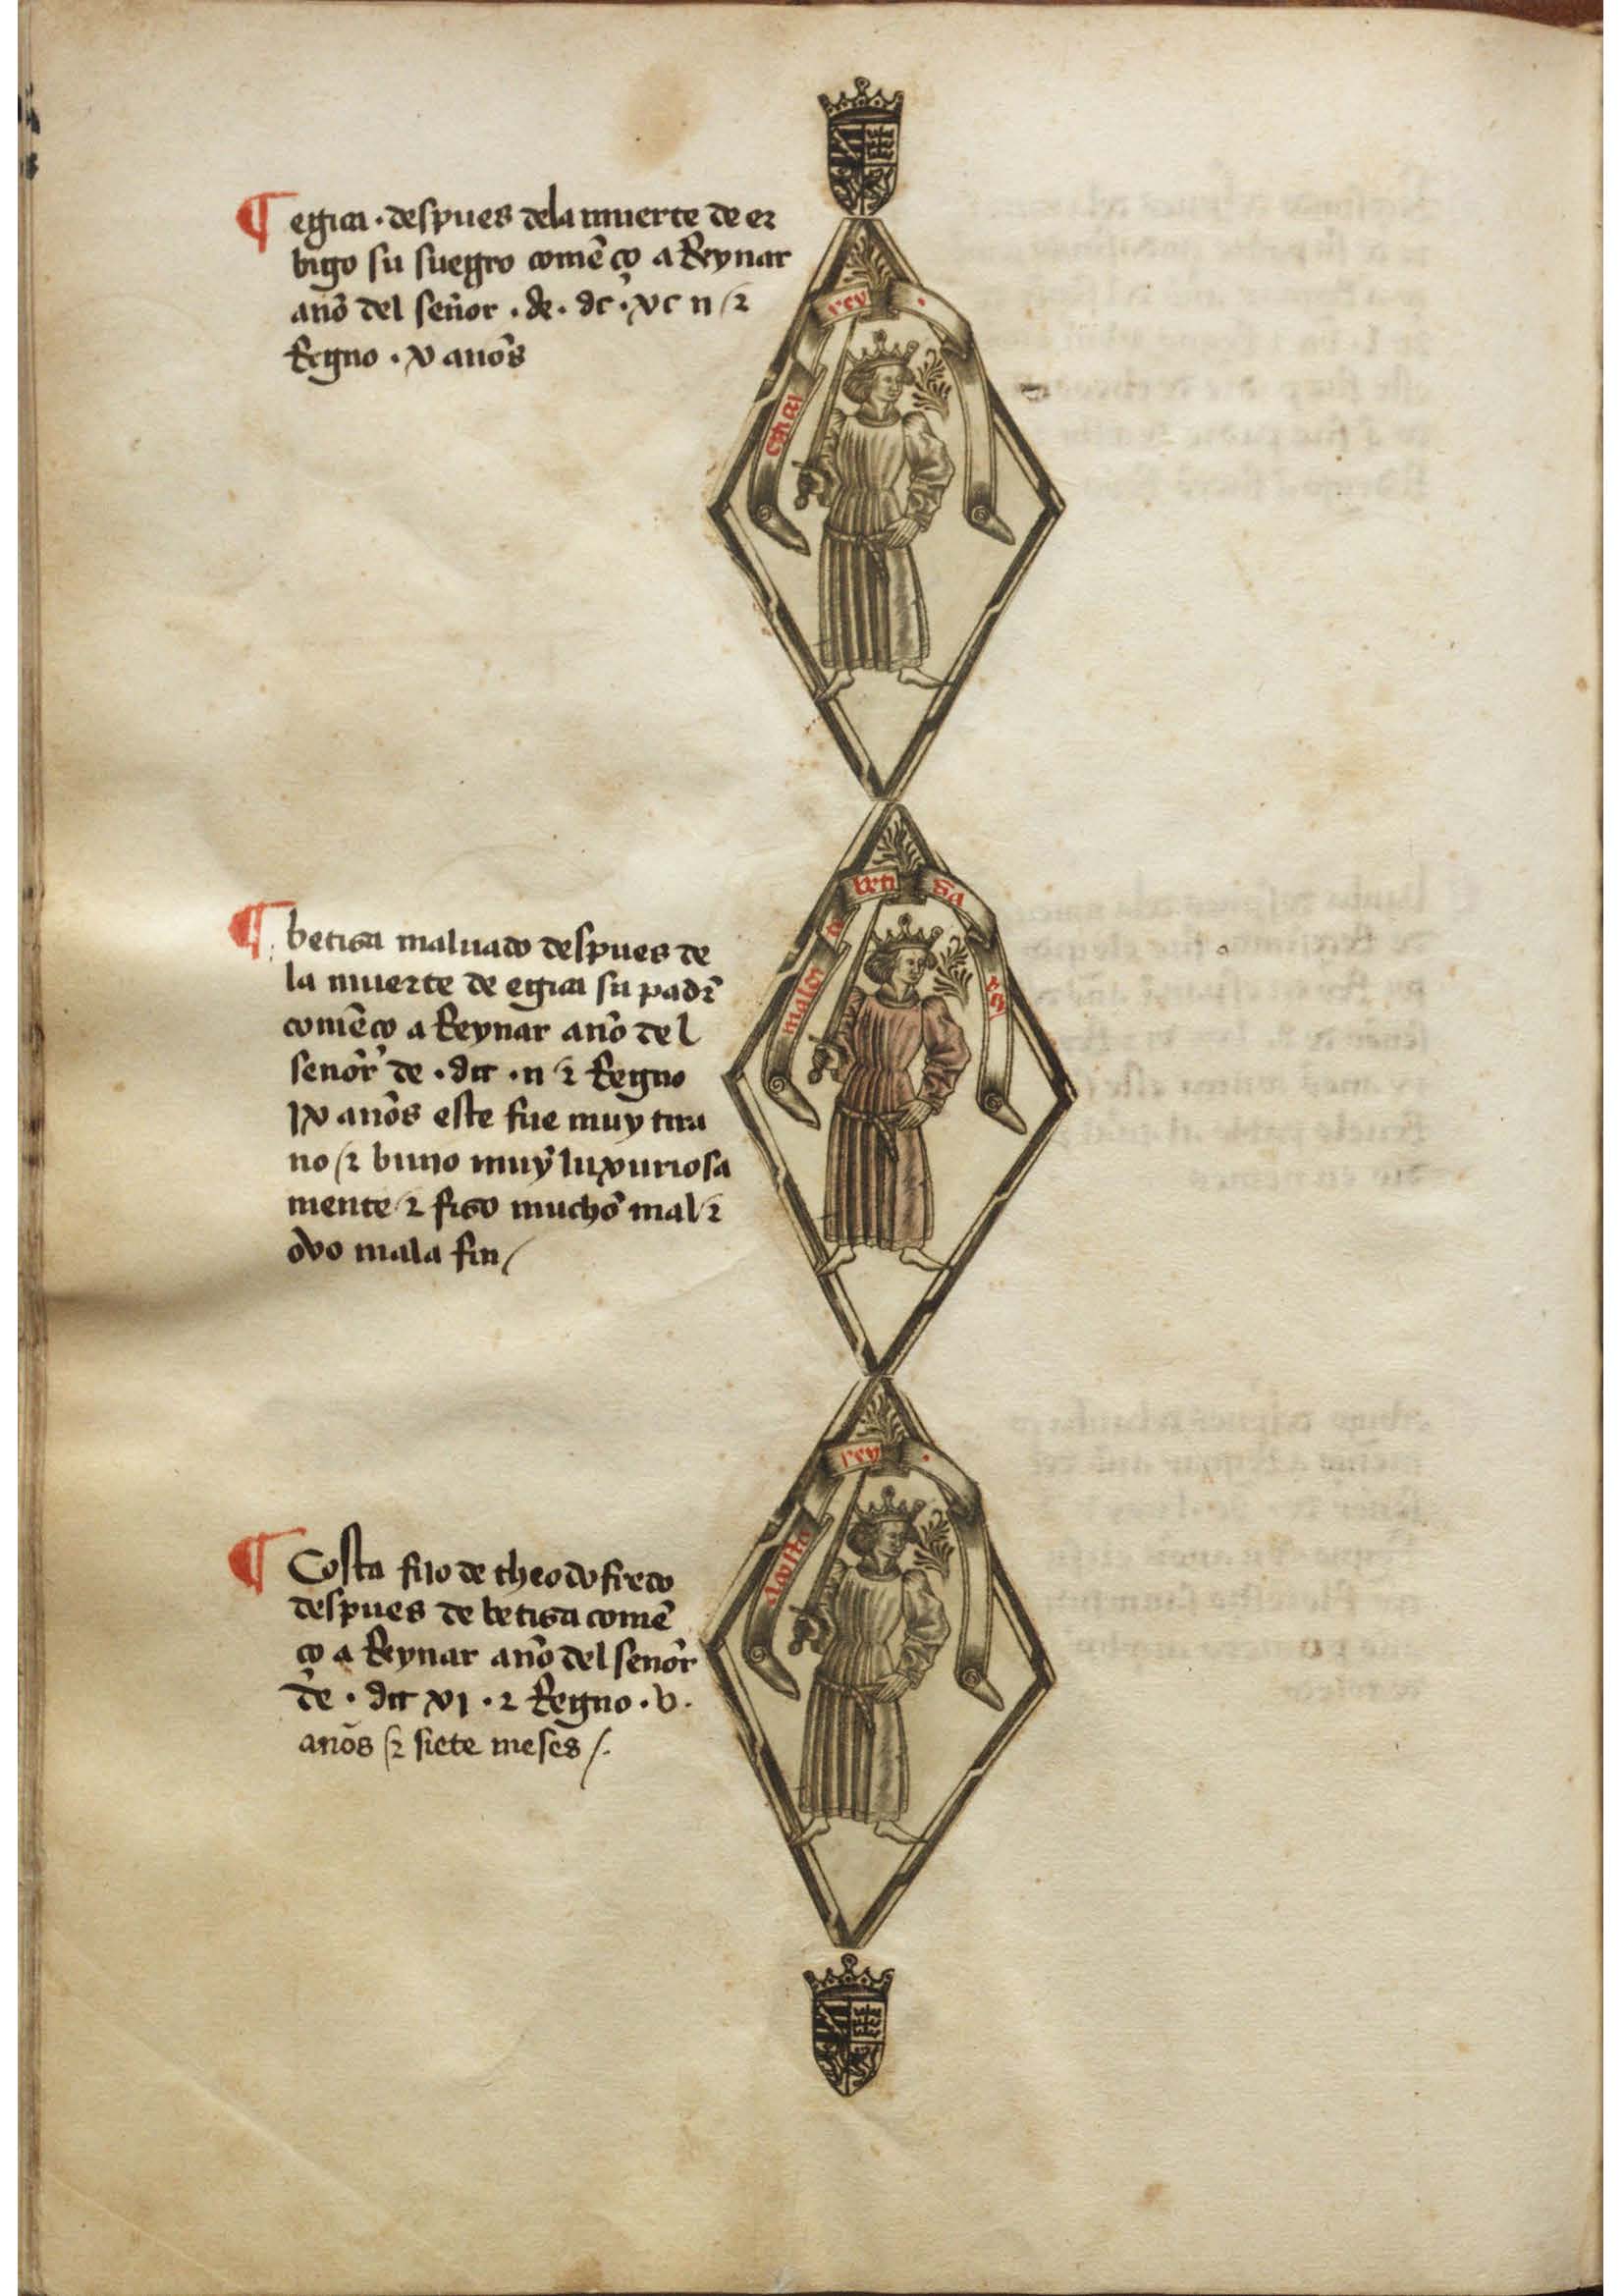 ¶ egica · despues dela muerte de er
bigo su suegro comēço a Reynar
año del señor · de · dc · xc ii ⁊
Regno · x años
rey
egica
¶ betisa maluado despues de
la muerte de egica su padr̄
comēço a Reynar año del
señor de · dcc · ii ⁊ Regno
ix años este fue muy tira
no ⁊ biuio muy luxuriosa
mente ⁊ fiso mucho mal ⁊
ovo mala fin /
beti sa
rey
¶ Costa fijo de theodofredo
despues de betisa comē
ço a Reynar año del señor
de · dcc xi · ⁊ Regno · v ·
años ⁊ siete meses /.
rey
acosta